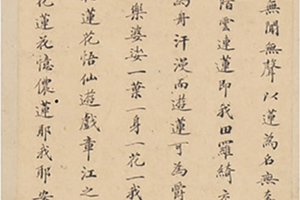 無聞無聲以蓮為名無
階雲連蓮即我田羅綺
為舟汗漫而遊蓮可為爵
樂婆娑一葉一身一花一我
蓮花悟仙遊戲章江之
花蓮花憶儂蓮耶我耶安